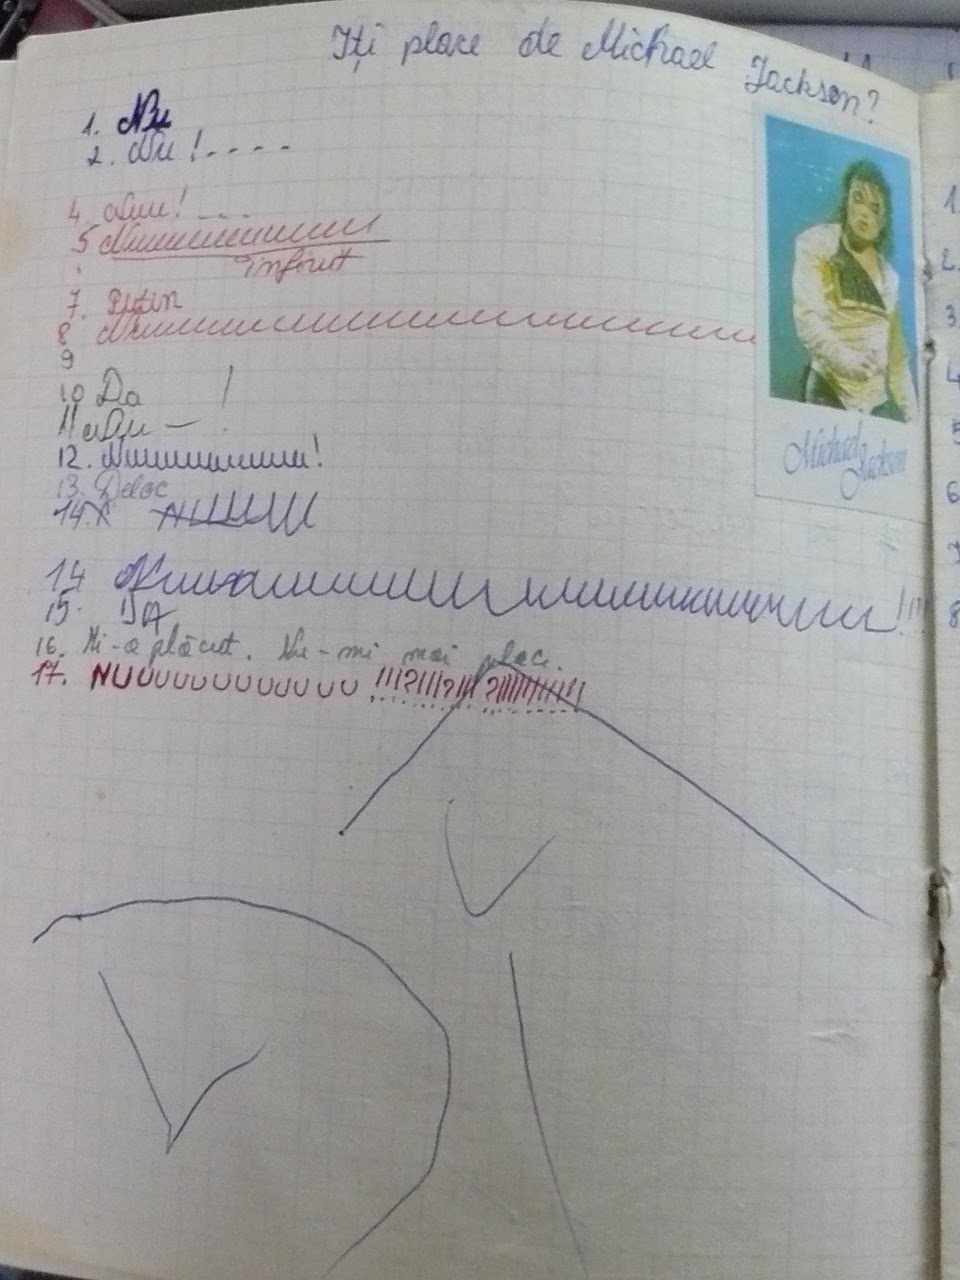 Iți place de Michael Jackson?
1. Nu
2. Nu !----
4. Nuu! ---
5 Nuuuuuuuuuuu
infinit
7. Puțin
8 Nuuuuuuuuuuuuuuuu
9
10 Da !
11 Nu — .
12. Nuuuuuuuuuu!
13. Deloc
14. X NUUUU
14 Nuuuuuuuuuuuuuuuuuuuuuuu!!!!
15. DA
16. Mi-a plăcut. Nu-mi mai place.
17. NUUUUUUUUUUUU !!!?!!!?!!! ?!!!!!!!!!!
Michael Jackson
1.
2.
3.
4
5
6
8